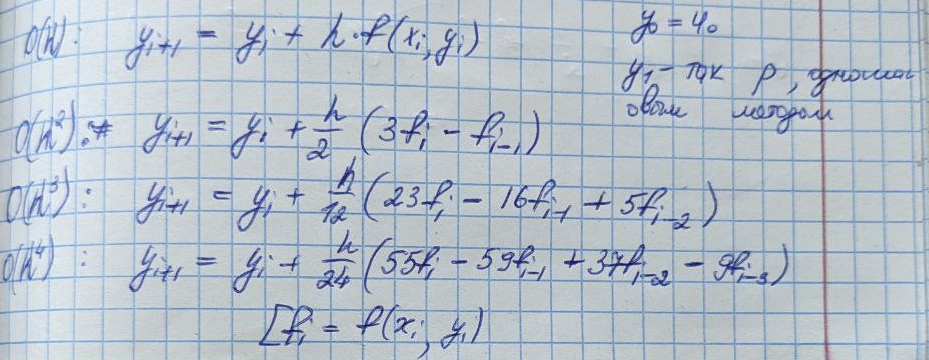 O(h): y_{i+1} = y_i + h·f(x_i, y_i)
y_0 = y_0
y_1 - так р, одношаг
овым методом
O(h²): y_{i+1} = y_i + h/2 (3f_i - f_{i-1})
O(h³): y_{i+1} = y_i + h/12 (23f_i - 16f_{i-1} + 5f_{i-2})
O(h⁴): y_{i+1} = y_i + h/24 (55f_i - 59f_{i-1} + 37f_{i-2} - 9f_{i-3})
[f_i = f(x_i, y_i)